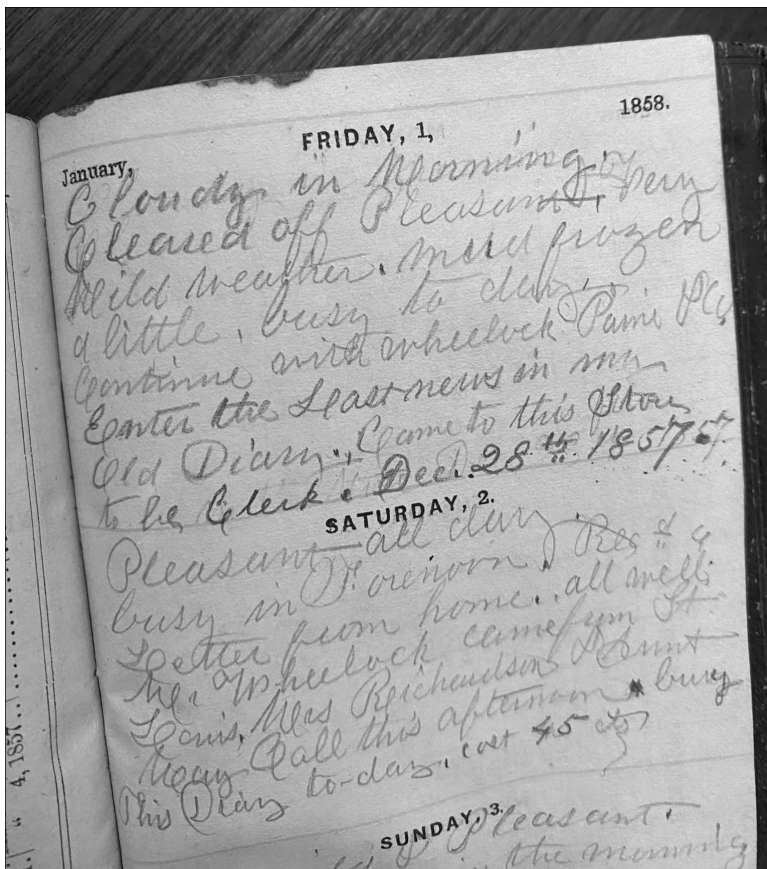 1858.
FRIDAY, 1,
January,
Cloudy in Morning.
Cleared off Pleasant, Very
Mild weather. Mud frozen
a little, busy to day.
Continue with Wheelock Paine & Co
Enter the Last news in my
Old Diary., Came to this Store
to be Clerk. Dec. 28th. 1857
SATURDAY, 2.
Pleasant all day.
busy in Forenoon. Rec'd a
Letter from home.. all well.
Mr. Wheelock came from St.
Louis. Mrs Reichardson & Aunt
May Call this afternoon busy
This Diary to-day. cost 45 cts
SUNDAY, 3.
Pleasant.
in the morning
" 4, 1857